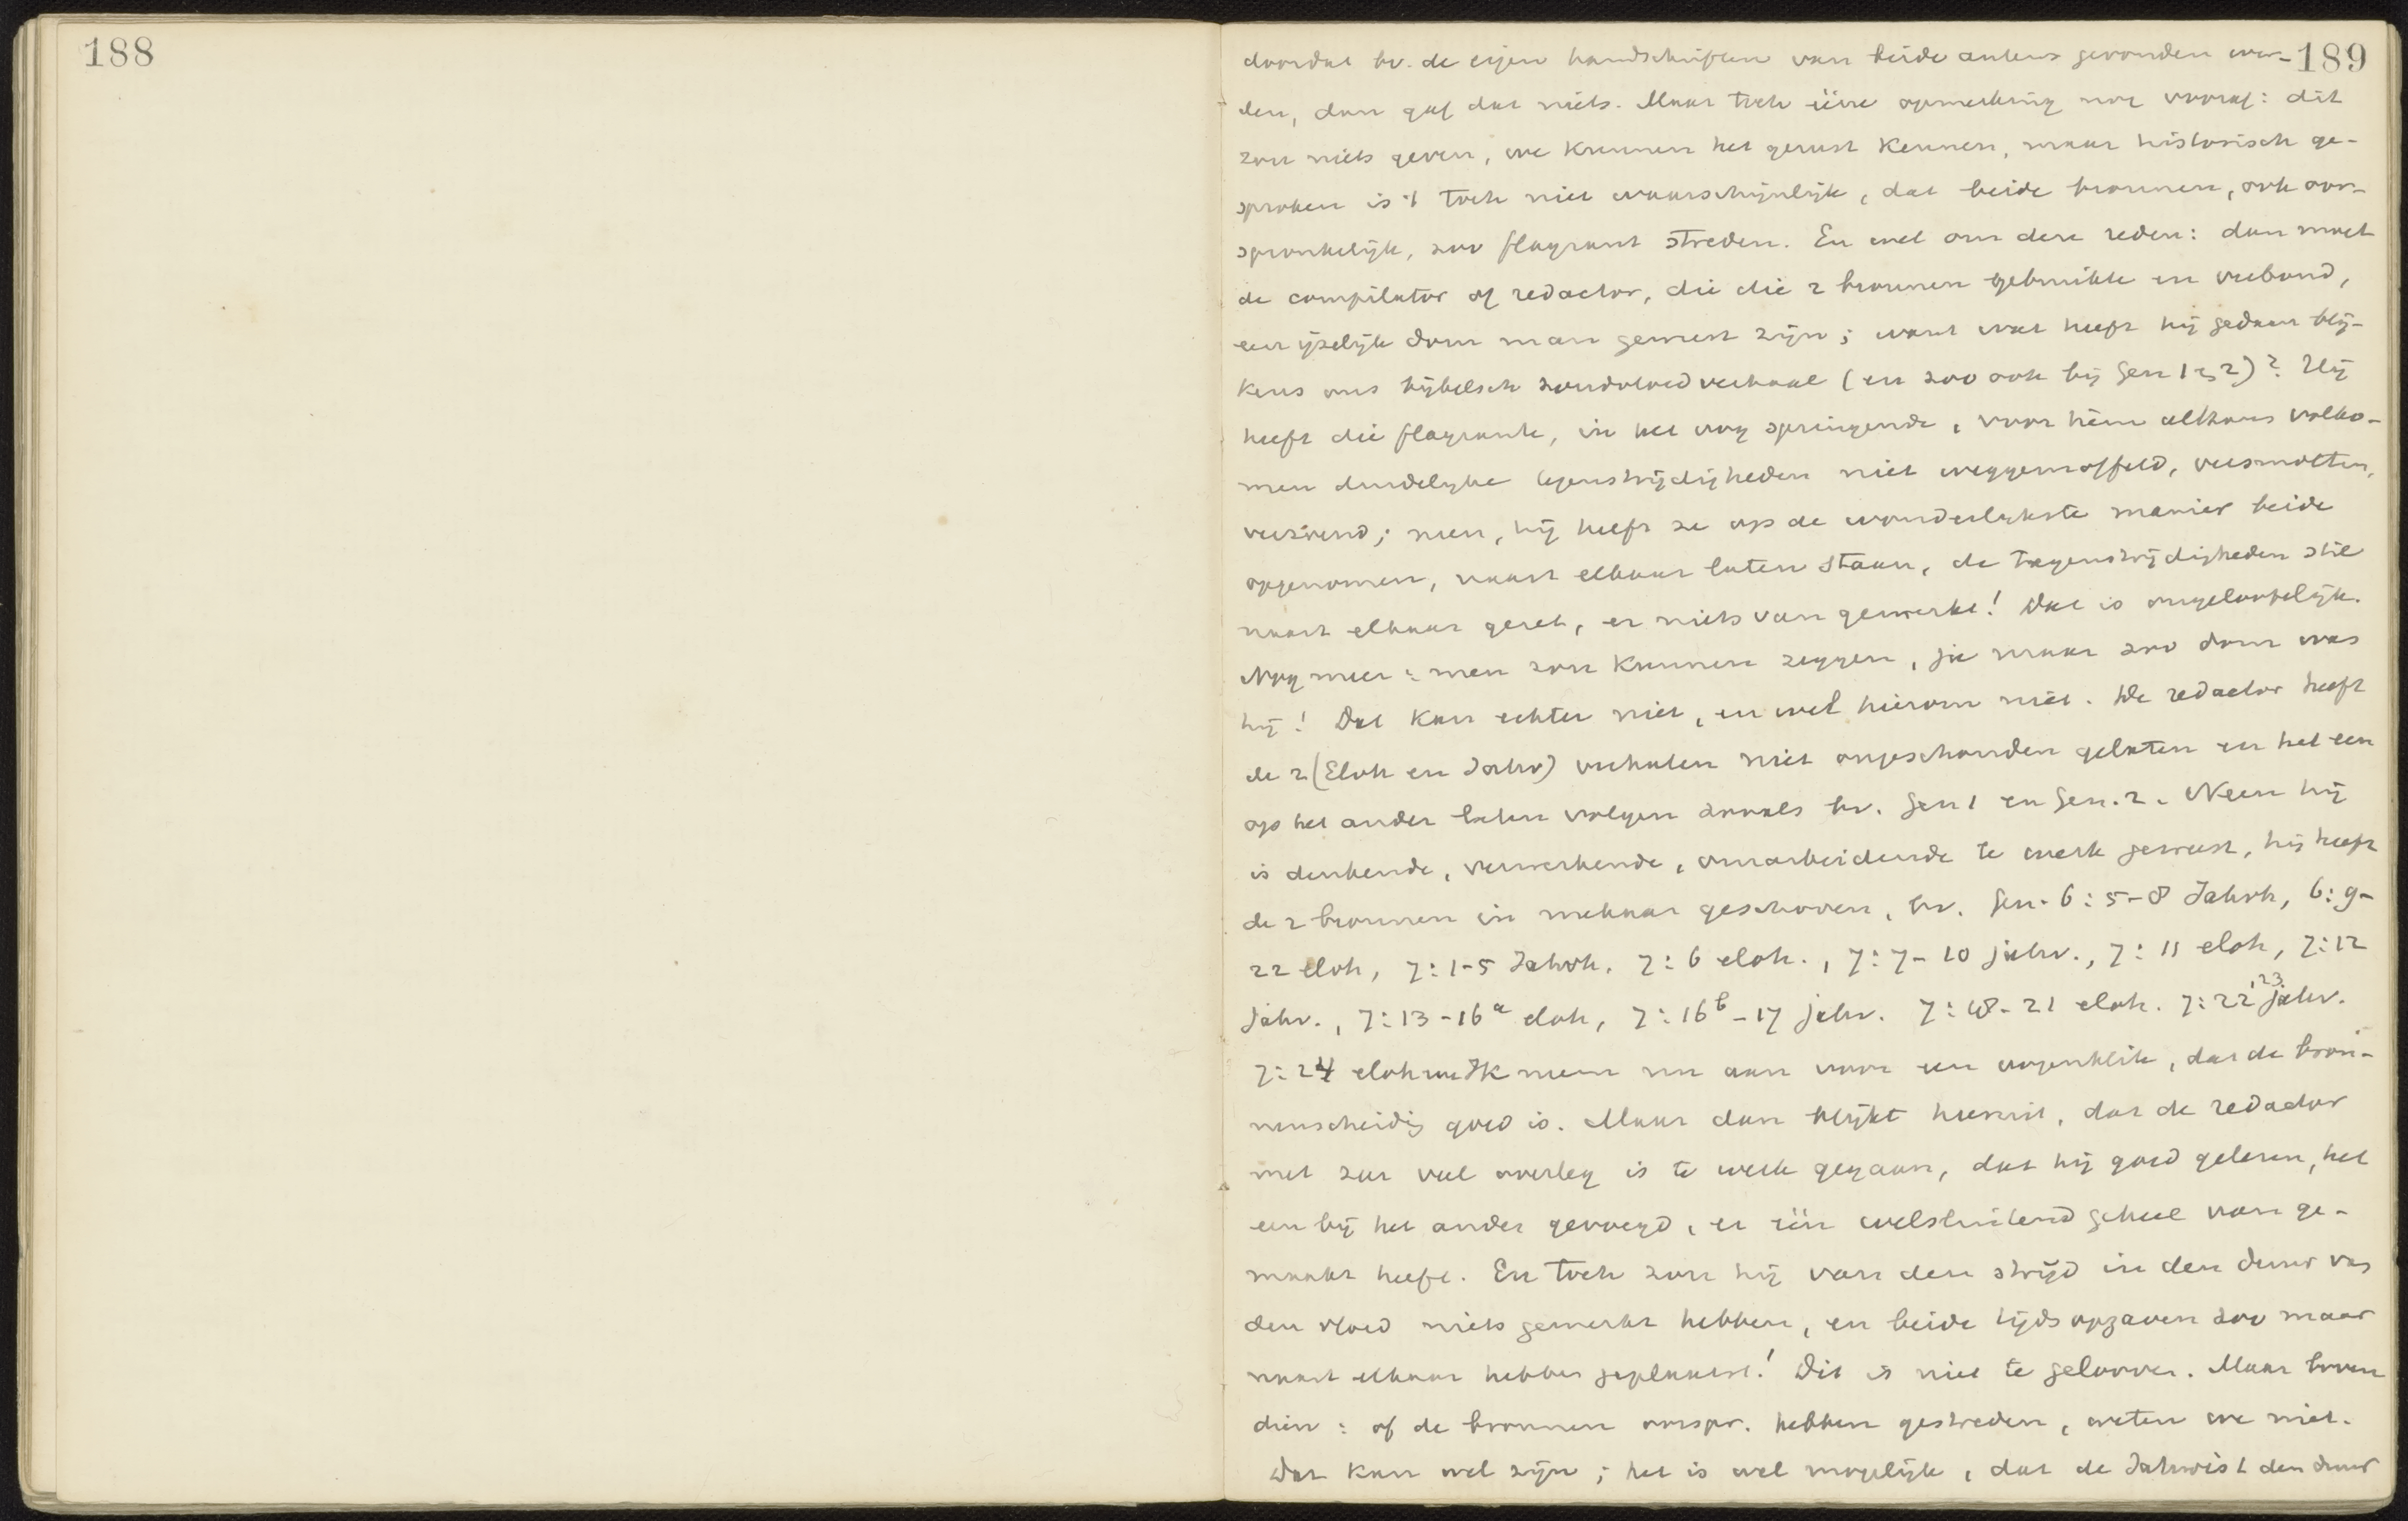 188
189
doordat bv. de eigen handschriften van beide auteurs gevonden wer-
den, dan gaf dat niets. Maar toch ééne opmerking nog vooraf: dit
zou niets geven, we kunnen het gerust kennen, maar historisch ge-
sproken is 't toch niet waarschijnlijk, dat beide bronnen, ook oor-
spronkelijk, zoo flagrant streden. En wel om deze reden: dan moet
de compilator of redactor, die die 2 bronnen gebruikte en verbond,
een ijselijk dom man geweest zijn; want wat heeft hij gedaan blij-
kens ons bijbelsch zondvloedverhaal (en zoo ook bij Gen 1 en 2)? Hij
heeft die flagrante, in het oog springende, voor hem althans volko-
men duidelijke tegenstrijdigheden niet weggemoffeld, versmolten,
verzoend; neen, hij heeft ze op de wonderlijkste manier beide
opgenomen, naast elkaar laten staan, de tegenstrijdigheden stil
naast elkaar gezet, er niets van gemerkt! Dat is ongelooflijk.
Nog meer: men zou kunnen zeggen, ja maar zoo dom was
hij! Dat kan echter niet, en wel hierom niet. De redactor heeft
de 2 (Eloh en Jahv) verhalen niet ongeschonden gelaten en het een
op het ander laten volgen zooals bv. Gen 1 en Gen. 2. Neen hij
is denkende, verwerkende, omarbeidende te werk geweest, hij heeft
de 2 bronnen in mekaar geschoven, bv. Gen. 6: 5-8 Jahvh, 6: 9-
22 eloh, 7: 1-5 Jahvh. 7: 6 eloh., 7: 7-10 jahv., 7: 11 eloh, 7: 12
Jahv., 7: 13-16a eloh, 7: 16b-17 jahv. 7: 18-21 eloh. 7: 22,23 jahv.
7: 24 eloh Ik neem nu aan voor een oogenblik, dat de bron-
nenscheidig goed is. Maar dan blijkt hieruit, dat de redactor
met zeer veel overleg is te werk gegaan, dat hij goed gelezen, het
een bij het ander gevoegd, er één welsluitend geheel van ge-
maakt heeft. En toch zou hij van den strijd in den duur van
den vloed niets gemerkt hebben, en beide tijdsopgaven zoo maar
naast elkaar hebben geplaatst! Dit is niet te gelooven. Maar boven
dien: of de bronnen oorspr. hebben gestreden, weten we niet.
Dat kan wel zijn; het is wel mogelijk, dat de Jahwist den duur